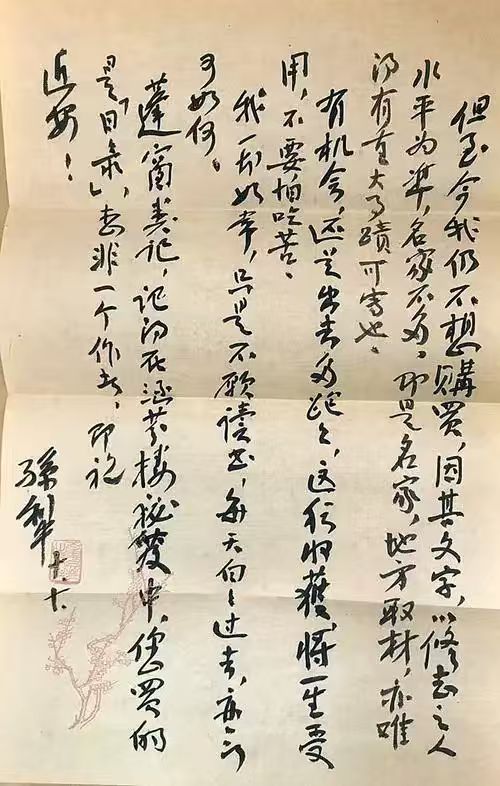 但至今我仍不想購買,因其文字,以修志之人
水平为準,名家不多。即是名家,地方取材,亦难
得有重大事蹟可寫也。
有机会,还是出去多跑々,这种收獲,将一生受
用,不要怕吃苦。
我一切如常,只是不願读书,每天白々过去,亦无
可如何。
蓬窗类记,记得在涵芬楼秘笈中,您买的
是「目录」,恐非一个作者,即祝
近安!
孫犁
十、十